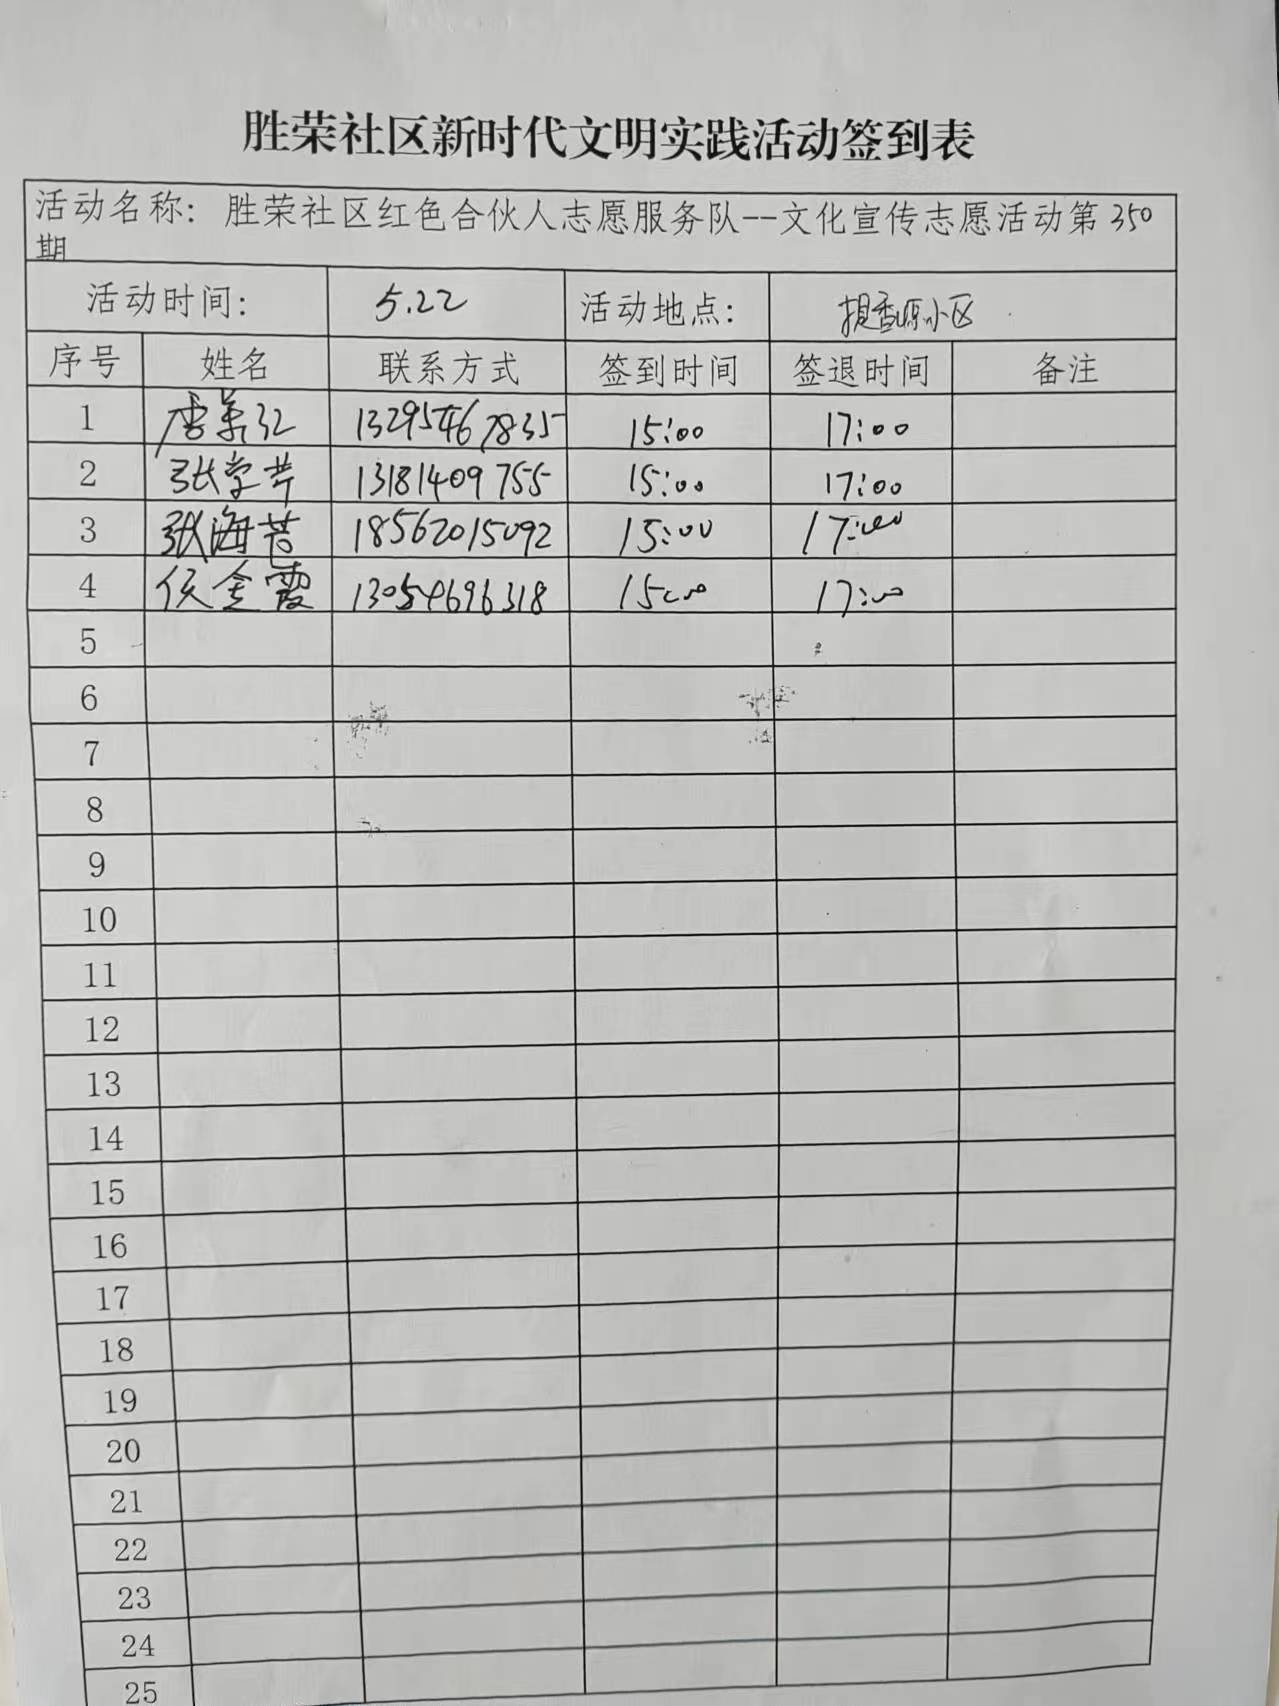 胜荣社区新时代文明实践活动签到表
活动名称：胜荣社区红色合伙人志愿服务队--文化宣传志愿活动第350
期
活动时间： 5.22 活动地点： 提香源小区
序号 姓名 联系方式 签到时间 签退时间 备注
1 13295467835 15:00 17:00
2 张学芹 13181409755 15:00 17:00
3 张海苦 18562015092 15:00 17:00
4 金霞 13054696318 15:00 17:00
5
6
7
8
9
10
11
12
13
14
15
16
17
18
19
20
21
22
23
24
25